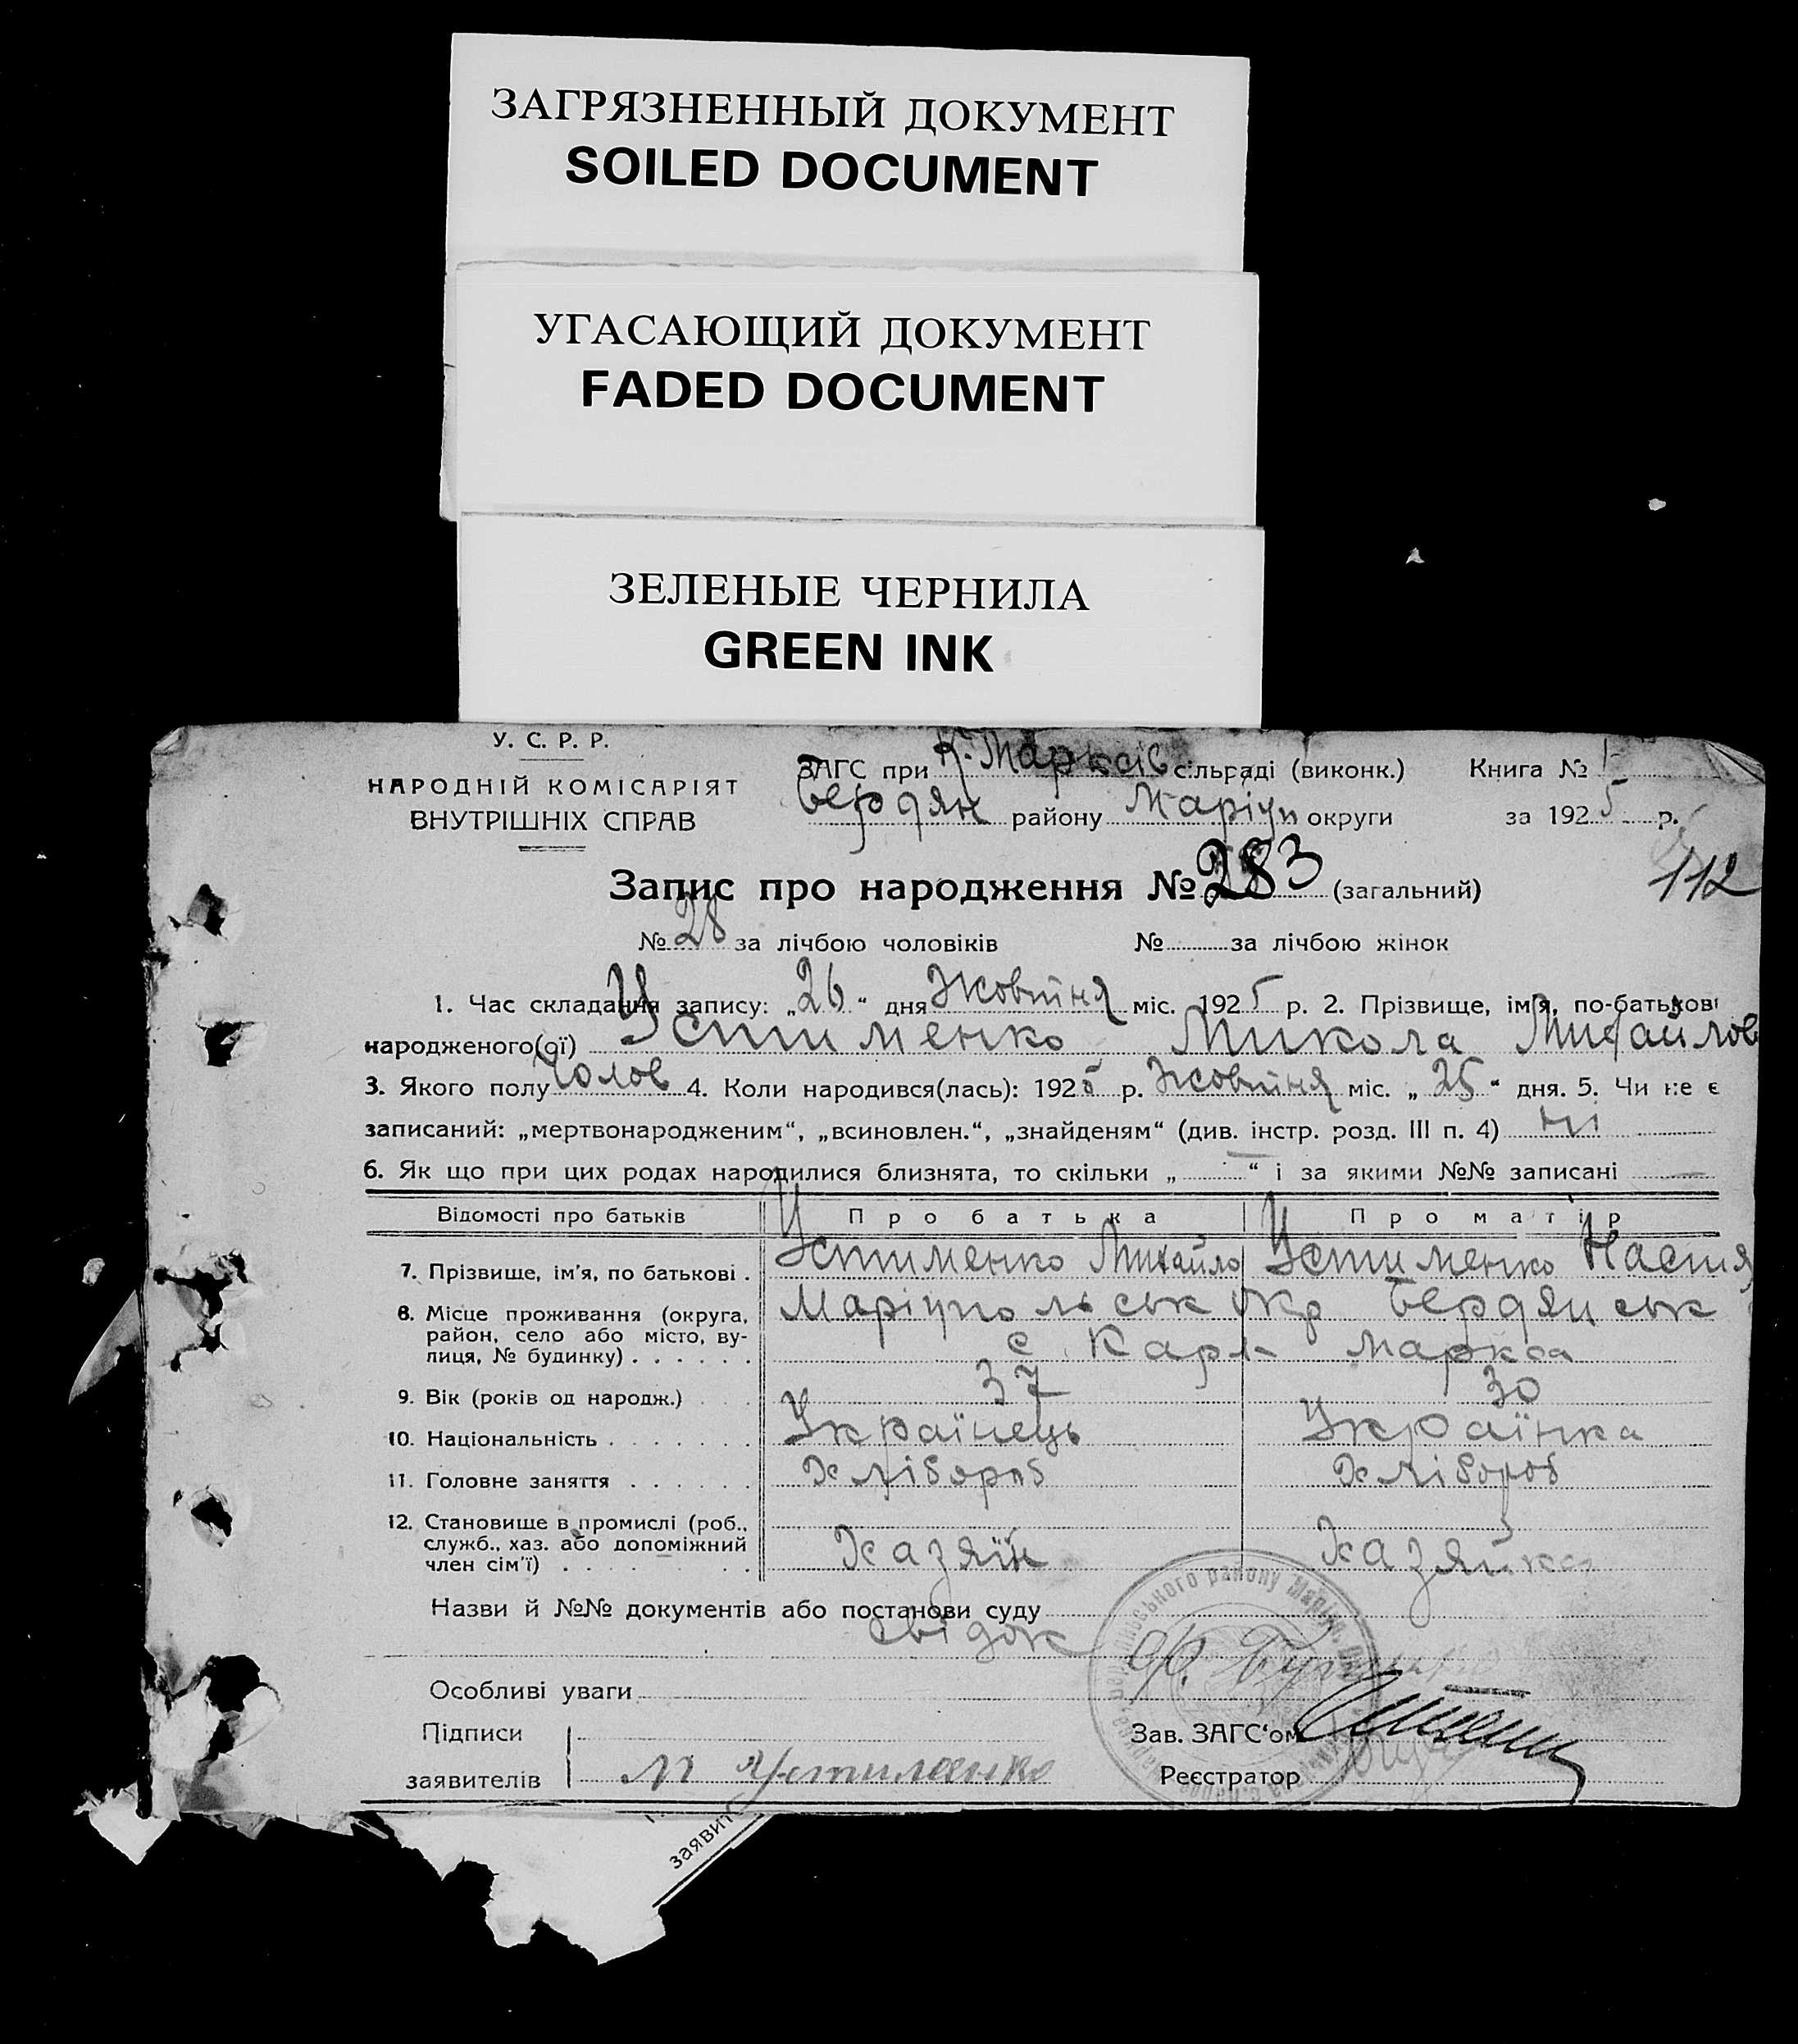 ЗАГРЯЗНЕННЫЙ ДОКУМЕНТ
SOILED DOCUMENT
УГАСАЮЩИЙ ДОКУМЕНТ
FADED DOCUMENT
ЗЕЛЕНЫЕ ЧЕРНИЛА
GREEN INK
У. С. Р. Р.
НАРОДНІЙ КОМІСАРІЯТ
ВНУТРІШНІХ СПРАВ
ЗАГС при К. Марксів сільраді (виконк.) Книга № 1
Бердян району Маріуп округи за 1925 р.
112
Запис про народження № 283 (загальний)
№ 28 за лічбою чоловіків № за лічбою жінок
1. Час складання запису: „26“ дня Жовтня міс. 1925 р. 2. Прізвище, ім'я, по-батькові
народженого(ої) Устименко Микола Михайлов
3. Якого полу Чолов 4. Коли народився(лась): 1925 р. Жовтня міс. „25“ дня. 5. Чи не є
записаний: „мертвонародженим“, „всиновлен.“, „знайденям“ (див. інстр. розд. III п. 4) ні
6. Як що при цих родах народилися близнята, то скільки „ “ і за якими №№ записані
Відомості про батьків Про батька Про матір
7. Прізвище, ім'я, по батькові . Устименко Михайло Устименко Настя
8. Місце проживання (округа, Маріупольськ Окр Бердянськ
район, село або місто, ву-
лиця, № будинку) . . . . . . с. Карл Маркса
9. Вік (років од народж.) 37 30
10. Національність . . . . . . . Українець Українка
11. Головне заняття . . . . . . Хлібороб Хлібороб
12. Становище в промислі (роб.,
служб., хаз. або допоміжний
член сім'ї) Хазяїн Хазяйка
Назви й №№ документів або постанови суду
свідок
Особливі уваги
Підписи Зав. ЗАГС'ом
заявителів М Устименко Реєстратор
заявит